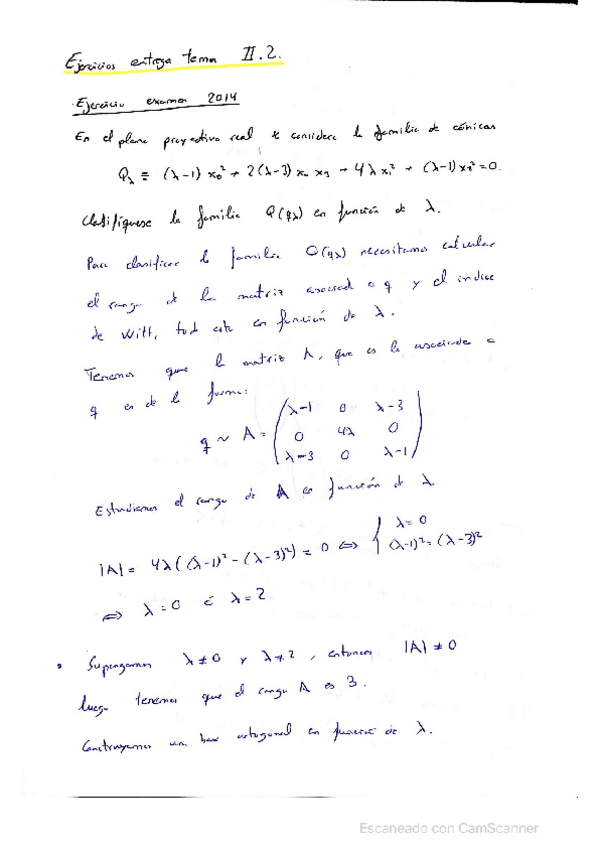 Ejercicios entrega tema II.2.
Ejercicio examen 2014
En el plano proyectivo real se considera la familia de cónicas
Qλ ≡ (λ-1) x₀² + 2(λ-3) x₀ x₂ + 4λ x₁² + (λ-1) x₂² = 0.
Clasifíquese la familia Q(qλ) en función de λ.
Para clasificar la familia Q(qλ) necesitamos calcular
el rango de la matriz asociada a q y el índice
de Witt, todo esto en función de λ.
Tenemos que la matriz A, que es la asociada a
q es de la forma:
q ~ A = ( λ-1 0 λ-3
0 4λ 0
λ-3 0 λ-1 )
Estudiamos el rango de A en función de λ
|A| = 4λ((λ-1)² - (λ-3)²) = 0 ⇔ { λ = 0
(λ-1)² = (λ-3)²
⇔ λ = 0 ó λ = 2
• Supongamos λ ≠ 0 y λ ≠ 2, entonces |A| ≠ 0
luego tenemos que el rango A es 3.
Construyamos una base ortogonal en función de λ.
Escaneado con CamScanner